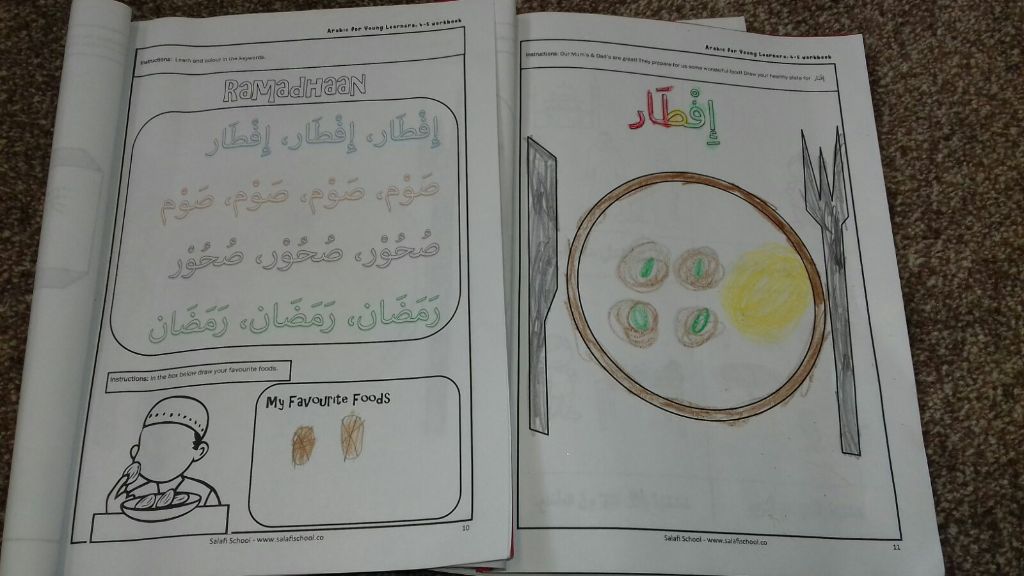 Arabic For Young Learners: 4-5 workbook
Instructions: Learn and colour in the keywords.
RAMADHAAN
إِفْطَار، إِفْطَار، إِفْطَار
صَوْم، صَوْم، صَوْم، صَوْم
صُحُوْر، صُحُوْر، صُحُوْر
رَمَضَان، رَمَضَان، رَمَضَان
Instructions: In the box below draw your favourite foods.
My Favourite Foods
10
Salafi School - www.salafischool.co
Arabic For Young Learners: 4-5 workbook
Instructions: Our Mum's & Dad's are great! They prepare for us some wonderful food! Draw your healthy plate for إِفْطَار
إِفْطَار
Salafi School - www.salafischool.co
11